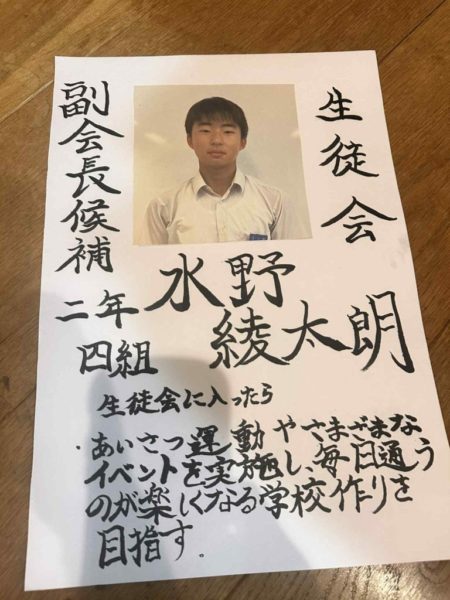 生徒会
副会長候補
二年
四組
水野
綾太朗
生徒会に入ったら
・あいさつ運動やさまざまな
イベントを実施し、毎日通う
のが楽しくなる学校作りを
目指す。